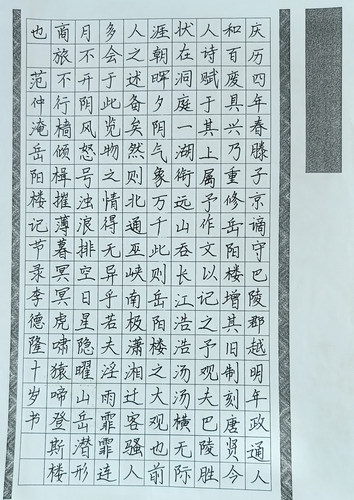 庆历四年春滕子京谪守巴陵郡越明年政通人
和百废具兴乃重修岳阳楼增其旧制刻唐贤今
人诗赋于其上属予作文以记之予观夫巴陵胜
状在洞庭一湖衔远山吞长江浩浩汤汤横无际
涯朝晖夕阴气象万千此则岳阳楼之大观也前
人之述备矣然则北通巫峡南极潇湘迁客骚人
多会于此览物之情得无异乎若夫淫雨霏霏连
月不开阴风怒号浊浪排空日星隐曜山岳潜形
商旅不行樯倾楫摧薄暮冥冥虎啸猿啼登斯楼
也 范仲淹岳阳楼记节录李德隆十岁书